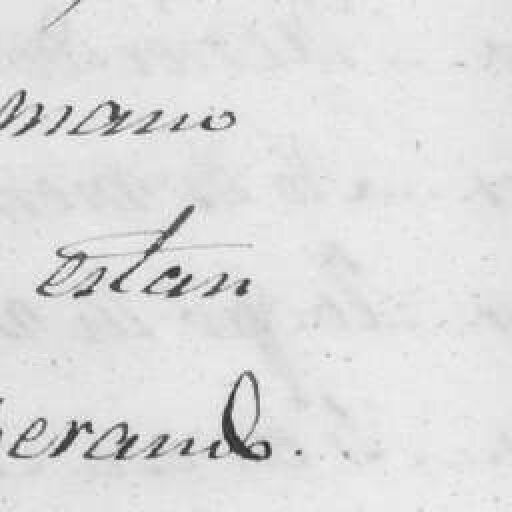 mano
estan
perando.